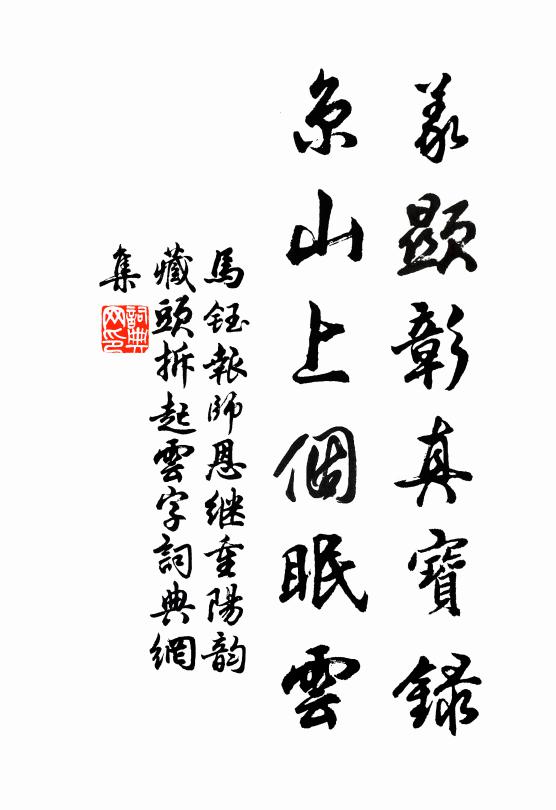 義顯彰真寶錄
京山上個眠雲
馬鈺報師恩继重陽韵
藏頭拆起雲字詞典網
集
詞典
网印